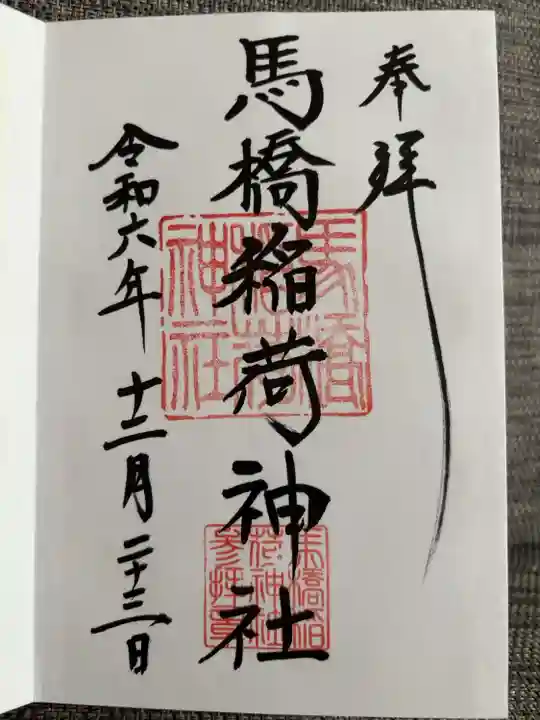 奉拝
馬橋稲荷神社
馬橋
稲荷
神社
馬橋稲
荷神社
参拝章
令和六年 十二月 二十三日